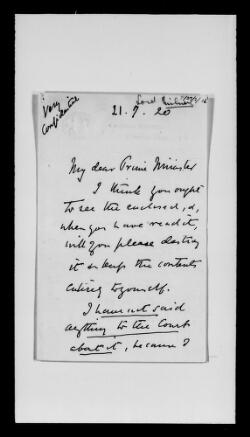 Very
Confidential
Lord
21.9.20
My dear Prime Minister
I think you ought
to see the enclosed, &,
when you have read it,
will you please destroy
it or keep the contents
entirely to yourself.
I have not said
anything to the Court
about it, because I